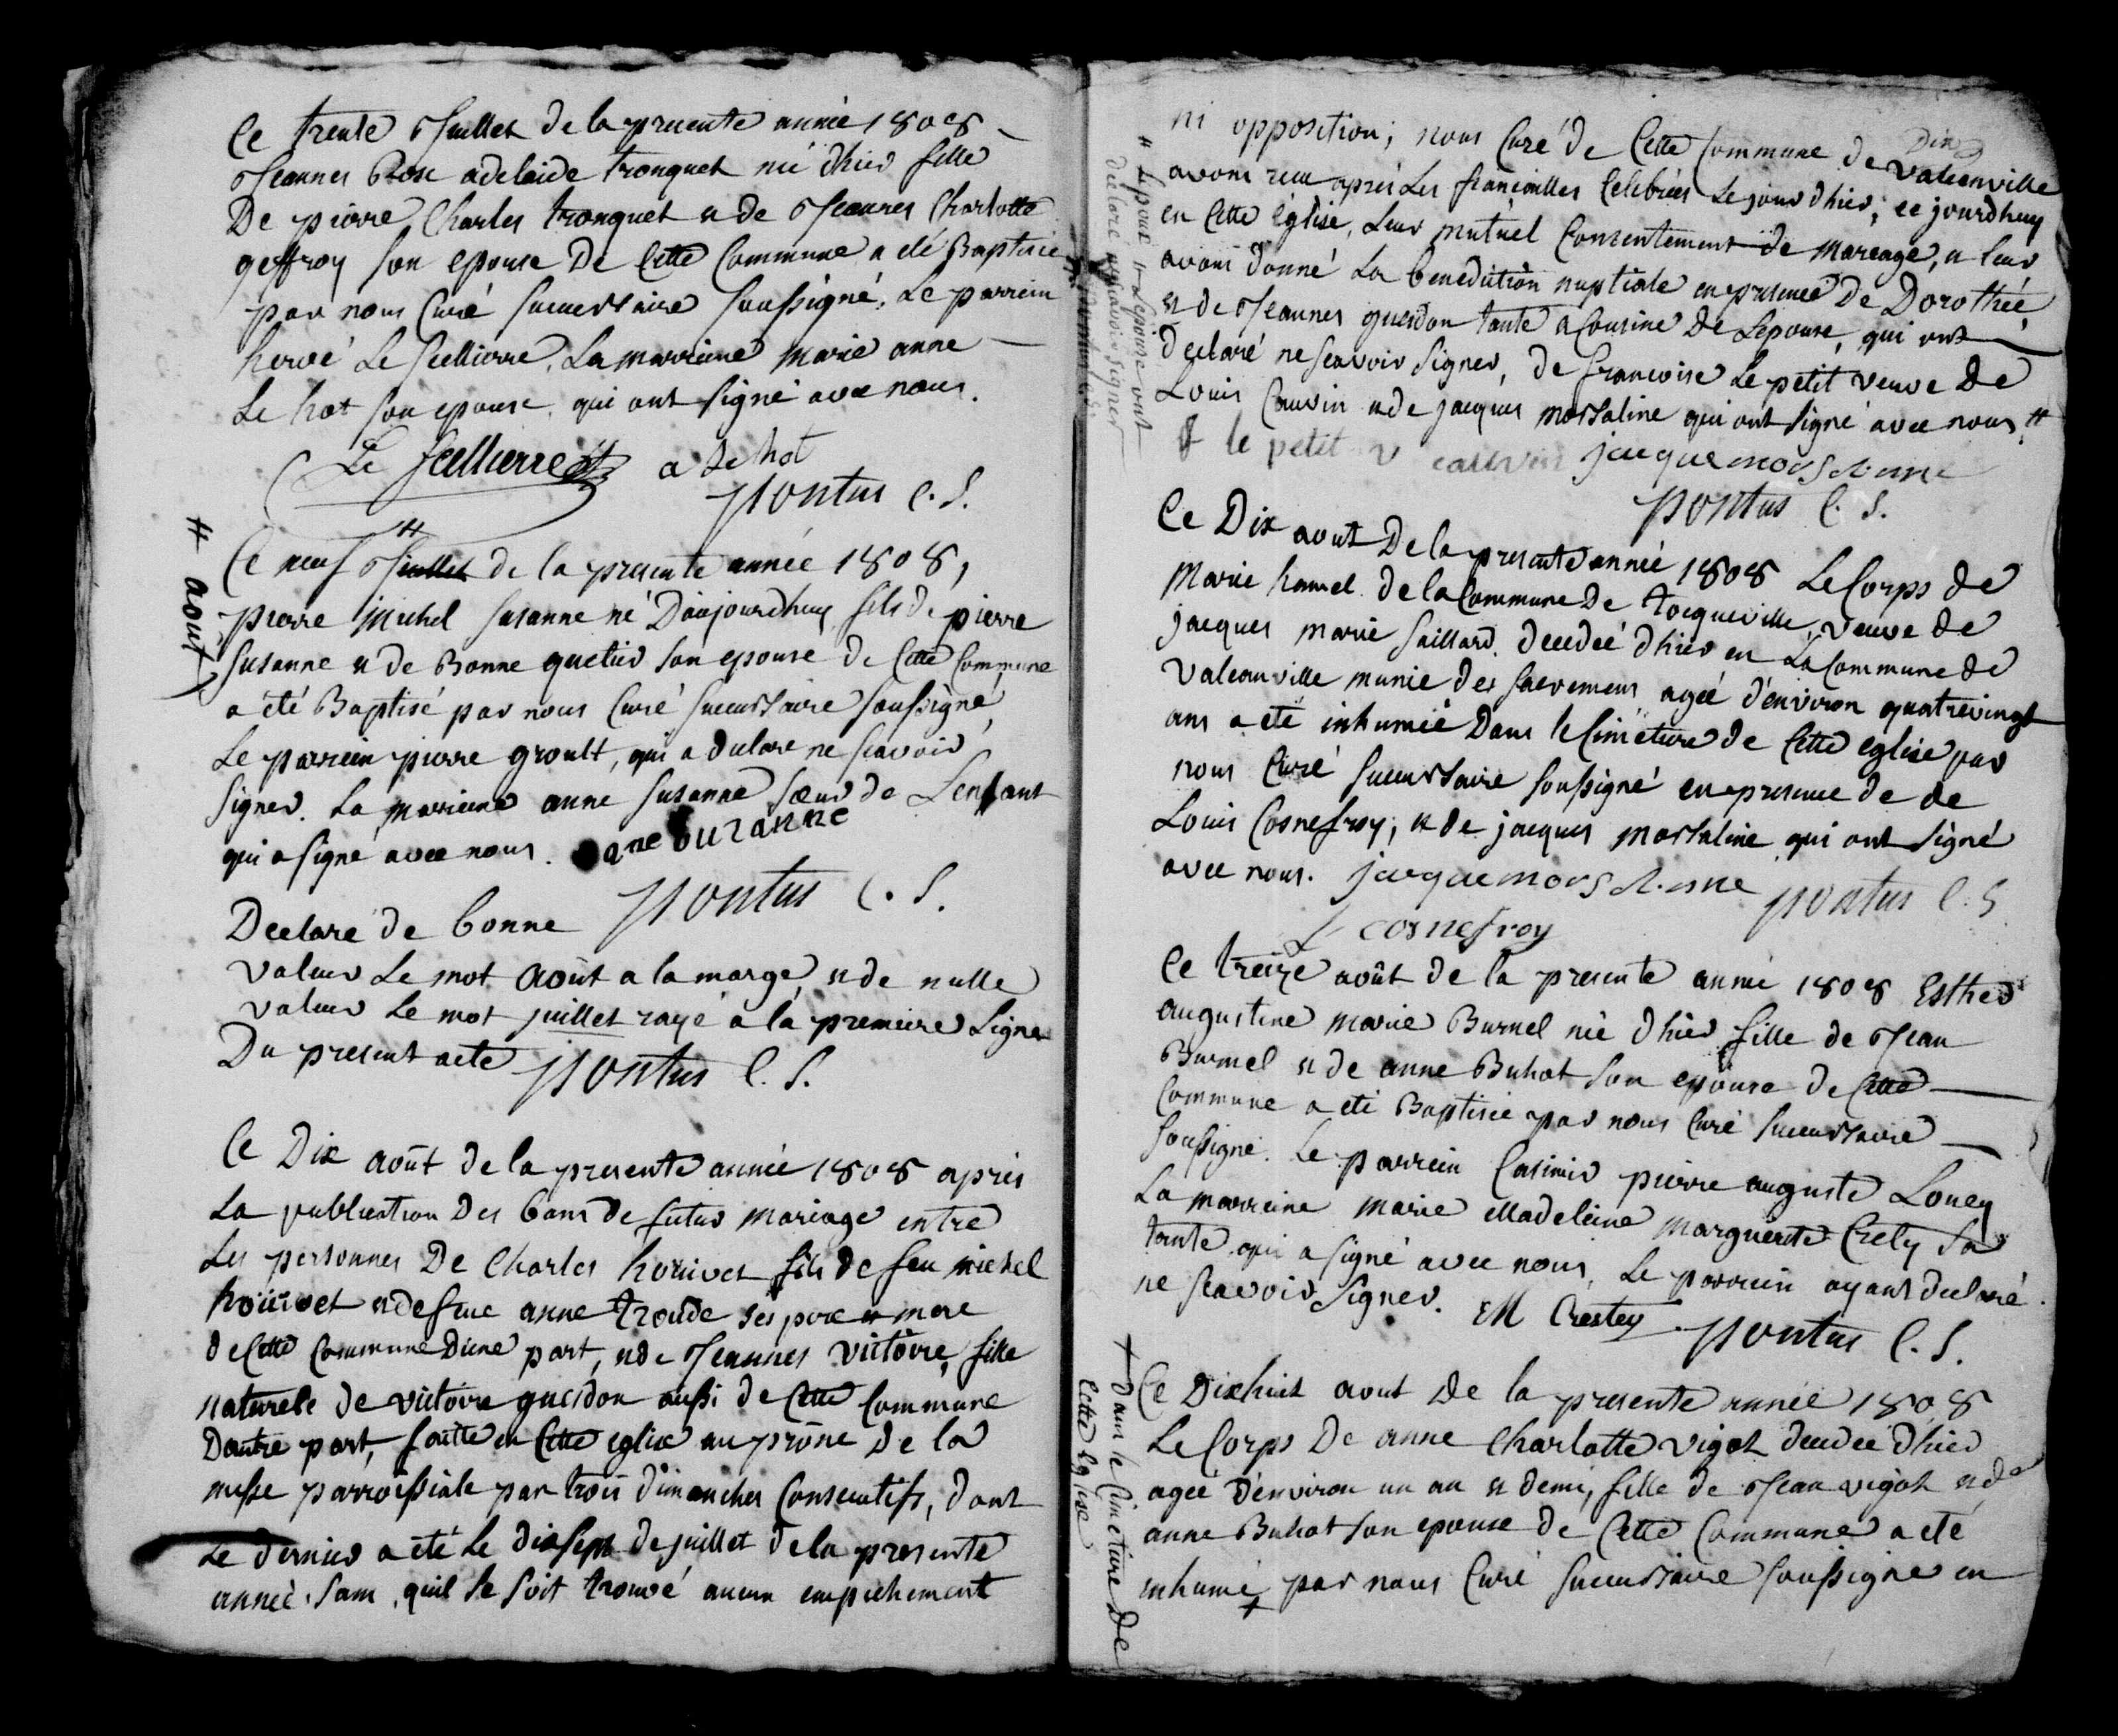 Ce trente Juillet de la presente année 1808
Jeannes Rose adelaide tronquet née dhier fille
De pierre Charles tronquet & de Jeannes Charlotte
geffroy son epouse De Cette Commune a été Baptisée
par nous Curé succursaire soussigné. Le parrein
hervé Le Sellierre. La marreine marie anne
Le hot son epouse qui ont signé avec nous.
Le Sellierre a Lehot
pontus C. S.
# août
Ce neuf Juillet # de la presente année 1808,
pierre Michel susanne né Daujourdhuy fils de pierre
susanne & de Bonne quetier son epouse de Cette Commune
a été Baptisé par nous Curé succursaire soussigné
Le parrein pierre groult, qui a declaré ne scavoir
signer. La marreine anne susanne sœur de Lenfant
qui a signé avec nous. ane suzanne
pontus C. S.
Declaré de bonne
valeur Le mot Août a la marge, & de nulle
valeur Le mot juillet rayé a la premiere Ligne
Du present acte pontus C. S.
Ce Dix août de la presente année 1808 après
La publication Des bans de futur mariage entre
Les personnes De Charles houivet fils de feu michel
houivet & de feue anne troude ses pere & mere
de Cette Commune Dune part, & de Jeannes victoire, fille
naturele de victoire gueidon aussi de Cette Commune
Dautre part, faitte en Cette eglise au prône De la
messe parroissiale par trois dimanches Consecutifs, dont
Le dernier a été Le dixsept de juillet de la presente
année, sans quil se soit trouvé aucun empechement
ni opposition; nous Curé de Cette Commune de Valcanville
avons recu après Les fiançailles Celebrées Le jour dhier, ce jourdhuy
en Cette église, Leur mutuel Consentement de mareage, & leur
avons donné La benediction nuptiale en presence De Dorothée
& de Jeannes gueidon tante & Cousine de Lepouse, qui ont
declaré ne scavoir signer, de francoise Le petit veuve De
Louis Cauvin & de jacques morsaline qui ont signé avec nous. #
f le petit v cauvin jacque morsaline
pontus C. S.
# Lepoux & Lepouse ont
declaré ne scavoir signer
Ce Dix aout De la presente année 1808 Le Corps de
Marie hamel de la Commune De tocqueville, veuve de
jacques marie saillard decedée dhier en La Commune de
Valcanville munie des sacremens agée d'environ quatrevingt
ans a été inhumée Dans le Cimetiere de Cette eglise par
nous Curé succursaire soussigné en presence de de
Louis Cosnefroy, & de jacques morsaline qui ont signé
avec nous. jacque morsaline pontus C. S
L cosnefroy
Ce treize août de la presente année 1808 Esther
augustine marie Burnel née dhier fille de Jean
Burnel & de anne Buhot son epouse de Cette
Commune a été Baptisée par nous Curé succursaire
soussigné. Le parrein Casimir pierre auguste Louey
La marreine marie Madeleine marguerite Crety sa
tante qui a signé avec nous, Le parrein ayant declaré
ne scavoir signer. M Crestey pontus C. S.
Ce Dixhuit aout De la presente année 1808
Le Corps De anne Charlotte vigot decedée dhier
agée d'environ un an & demi, fille de Jean vigot & de
anne Buhot son epouse de Cette Commune a été
inhumé + par nous Curé succursaire soussigné en
+ dans le Cimetiere De
Cette Eglise